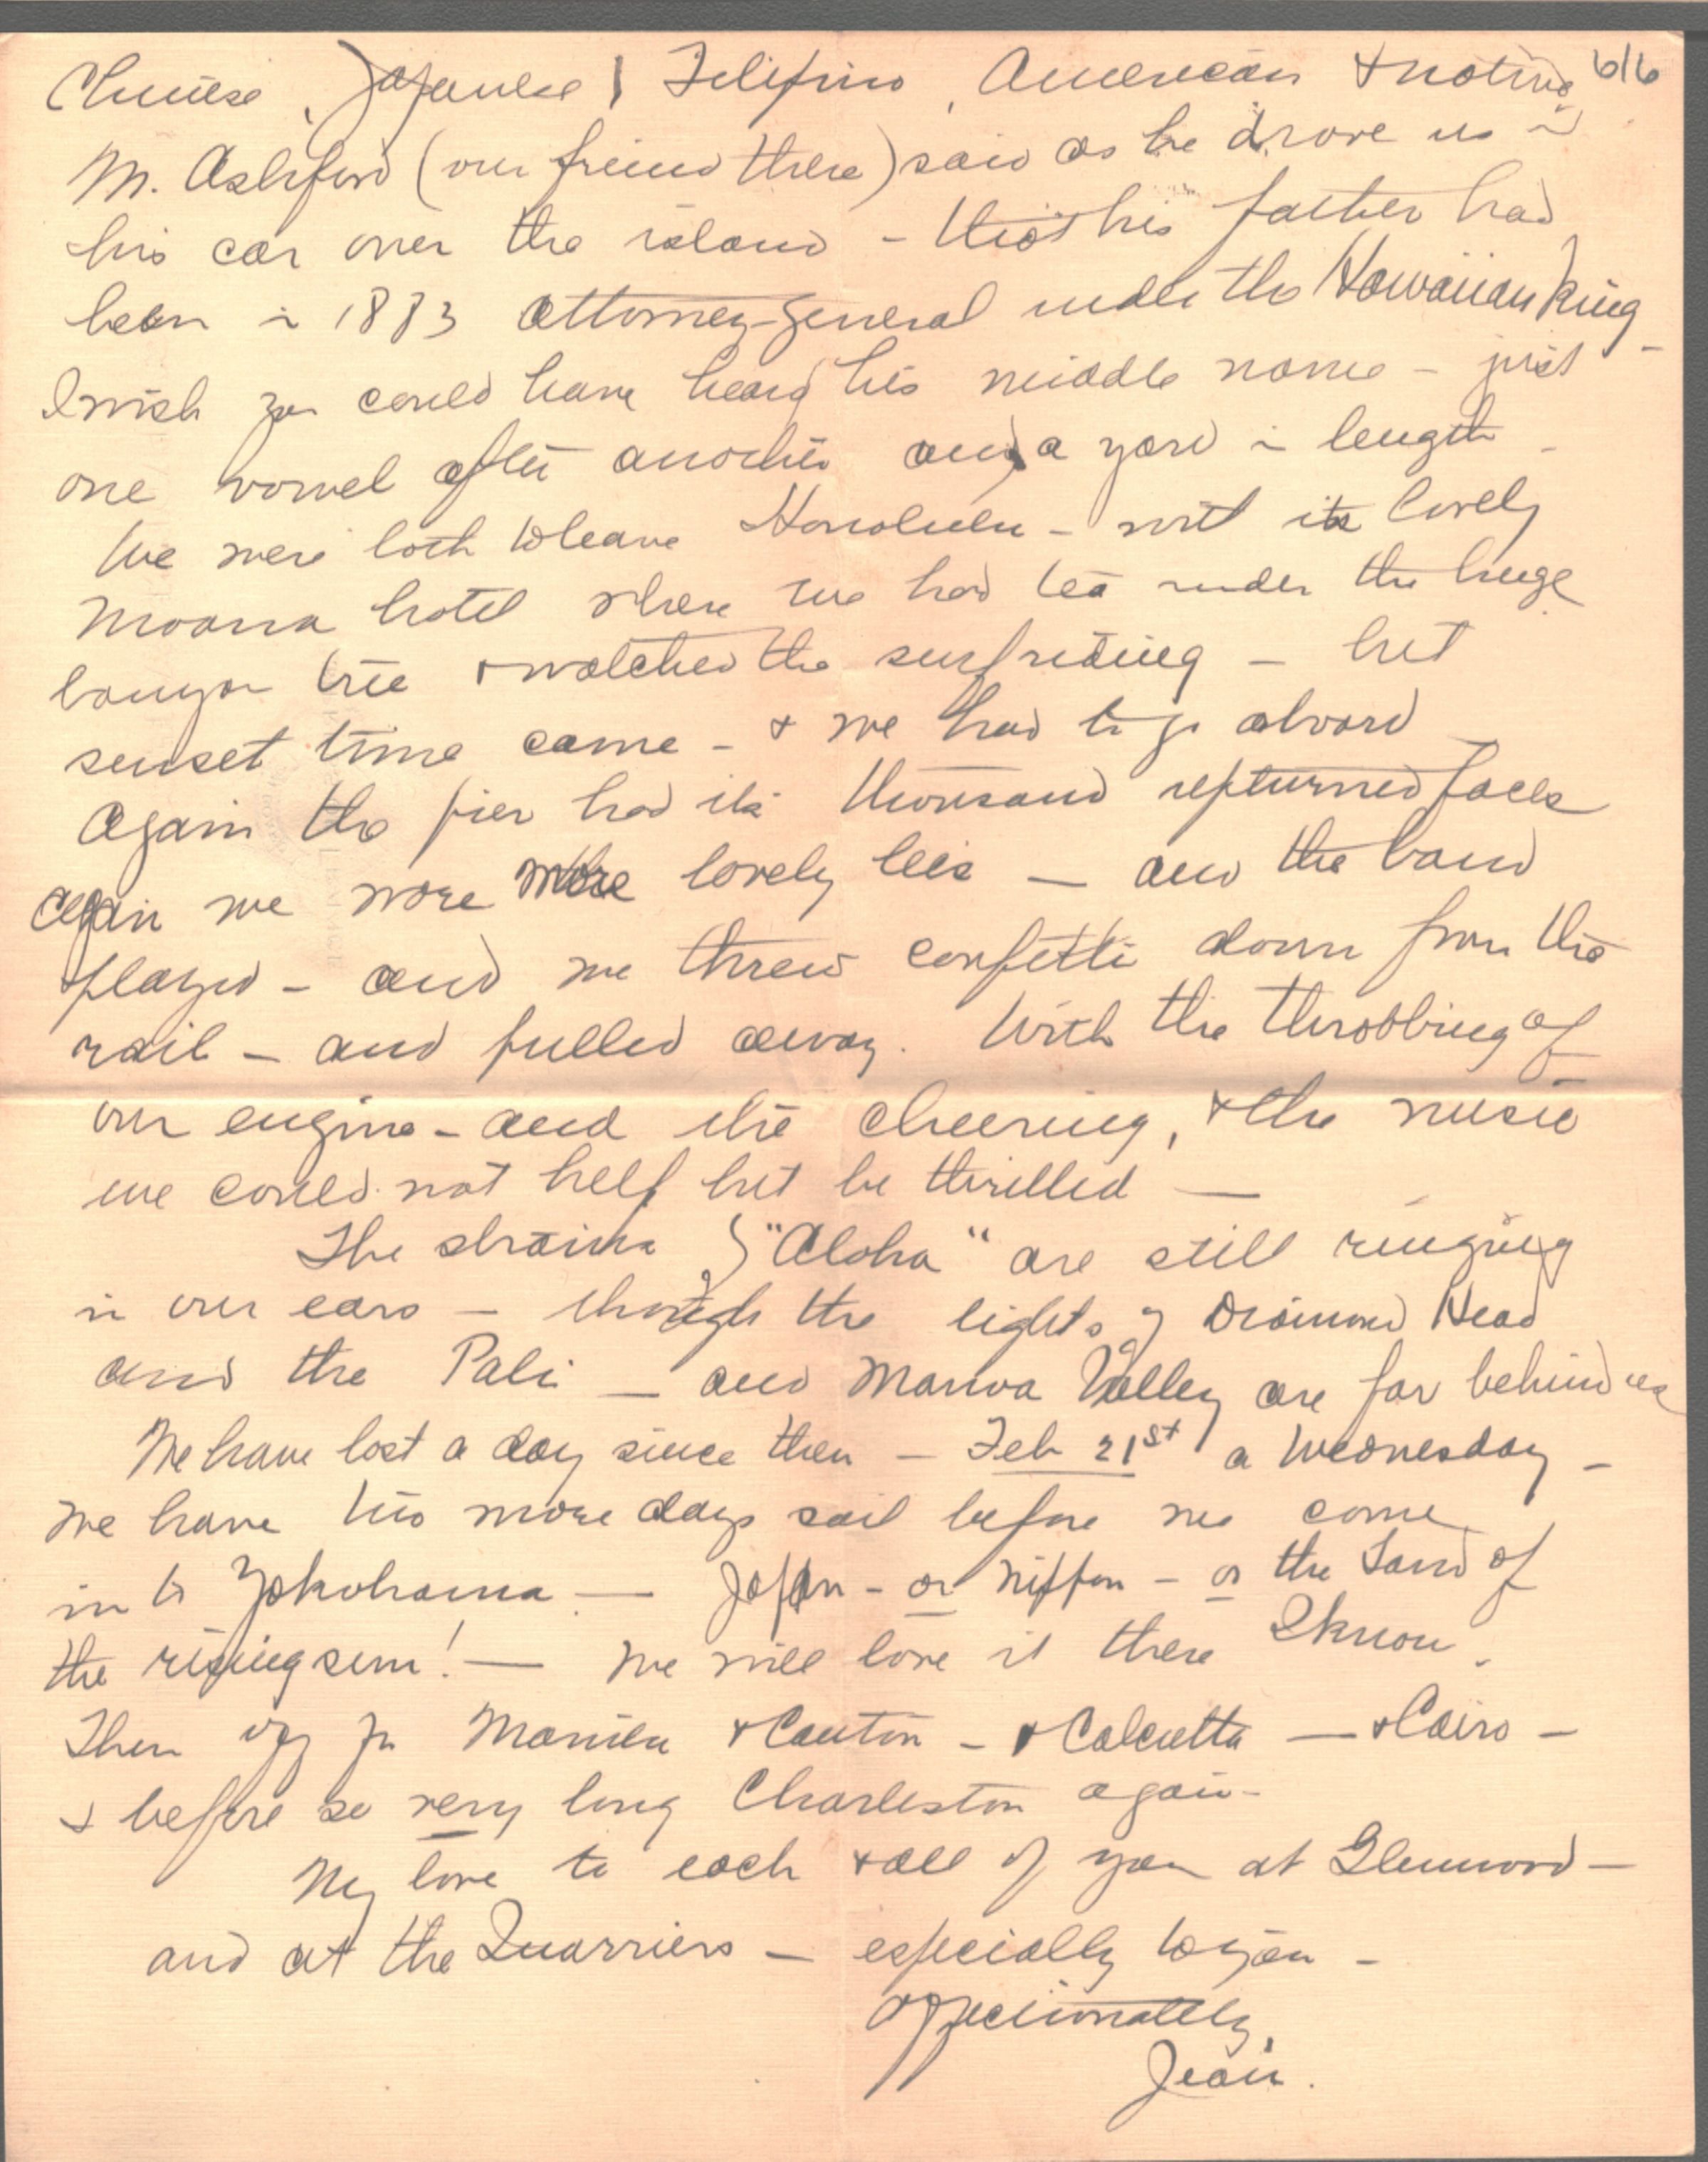 Chinese, Japanese, Filipino, American & native 6/6
M. Ashford (our friend there) said as he drove us in
his car over the island - that his father had
been in 1883 Attorney-General under the Hawaiian King -
I wish you could have heard his middle name - just
one vowel after another and a yard in length -
We were loth to leave Honolulu - with its lovely
Moana hotel where we had tea under the huge
banyan tree & watched the surfriding - but
sunset time came - & we had to go aboard -
Again the pier had its thousand upturned faces
again we wore more lovely leis - and the band
played - and we threw confetti down from the
rail - and pulled away. With the throbbing of
our engine - and the cheering, & the music
we could not help but be thrilled —
The strains of "Aloha" are still ringing
in our ears - though the lights of Diamond Head
and the Pali - and Manoa Valley are far behind us
We have lost a day since then - Feb 21st a Wednesday -
We have two more days sail before we come
in to Yokohama — Japan - or Nippon - or the Land of
the rising sun! — We will love it there I know.
Then Manila & Canton - & Calcutta — & Cairo -
& before so very long Charleston again -
My love to each & all of you at Glenwood -
and at the Quarriers - especially to you -
Affectionately,
Jean.